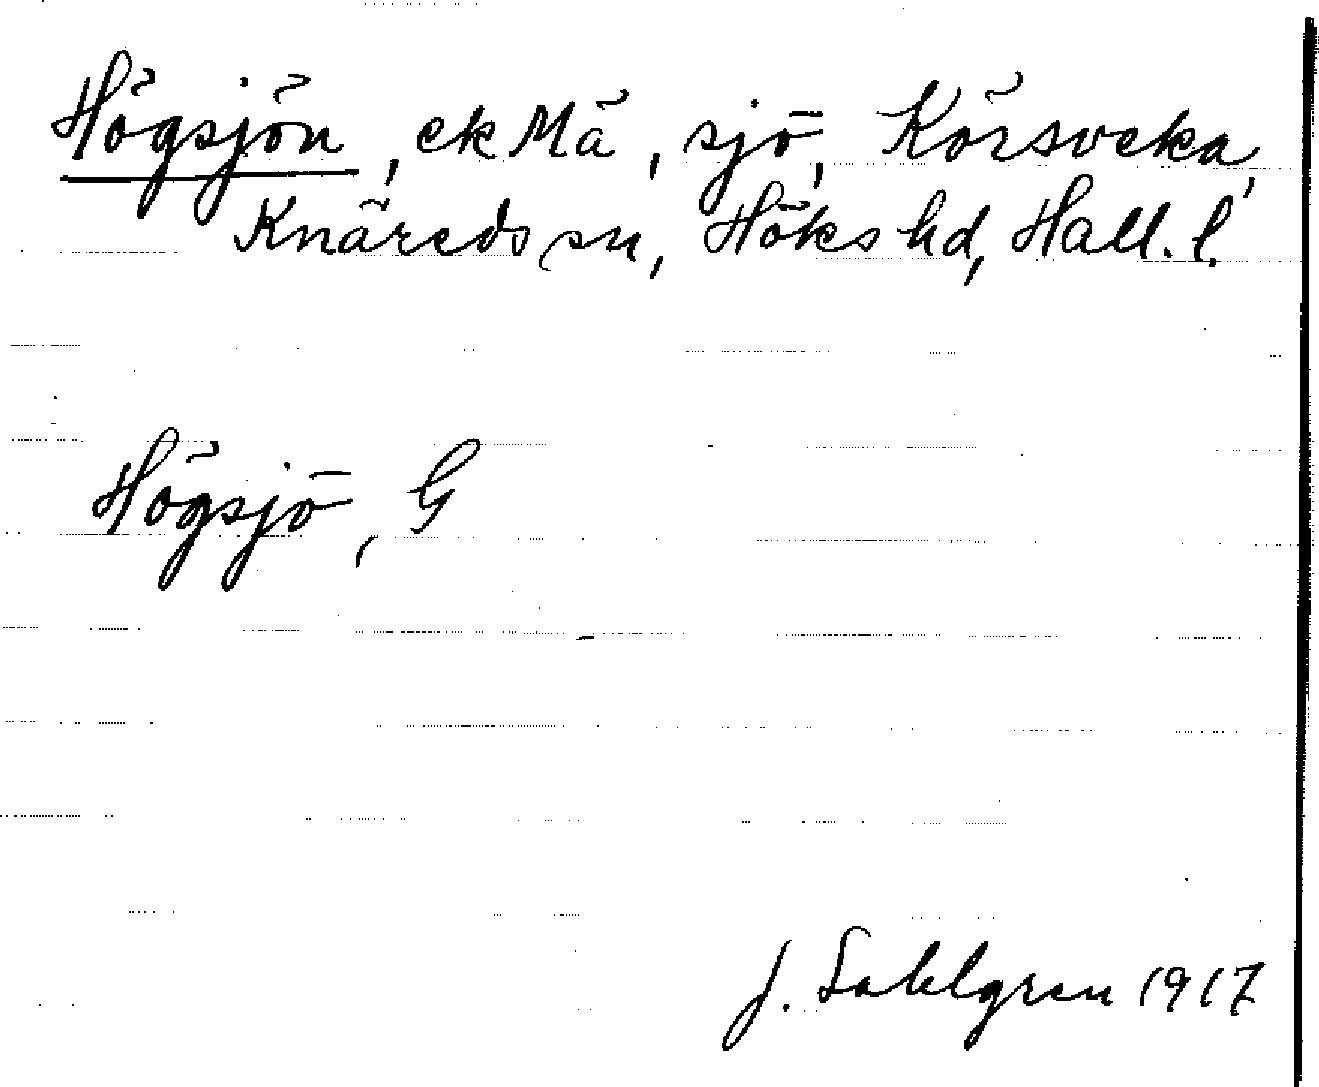 Högsjön, ek Mä, sjö, Körsveka,
Knäreds sn, Höks hd, Hall. l.
Högsjö, G
J. Sahlgren 1917